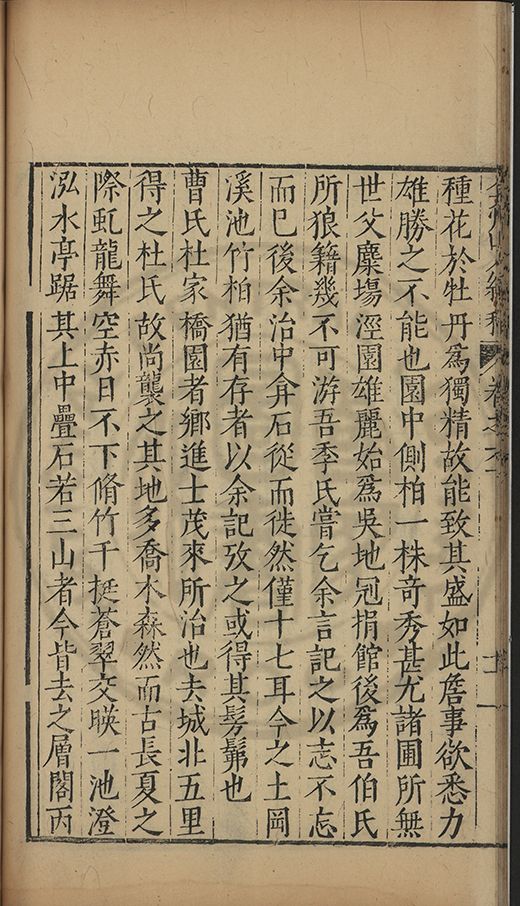 種花於牡丹爲獨精故能致其盛如此詹事欲悉力
雄勝之不能也園中側柏一株竒秀甚尤諸圃所無
世父麋塲涇園雄麗始爲吳地冠捐館後爲吾伯氏
所狼籍幾不可游吾季氏嘗乞余言記之以志不忘
而已後余治中弇石從而徙然僅十七耳今之土岡
溪池竹柏猶有存者以余記攷之或得其髣髴也
曹氏杜家橋園者鄉進士茂來所治也去城北五里
得之杜氏故尚襲之其地多喬木森然而古長夏之
際虬龍舞空赤日不下脩竹千挺蒼翠交暎一池澄
泓水亭踞其上中疊石若三山者今皆去之層閣丙